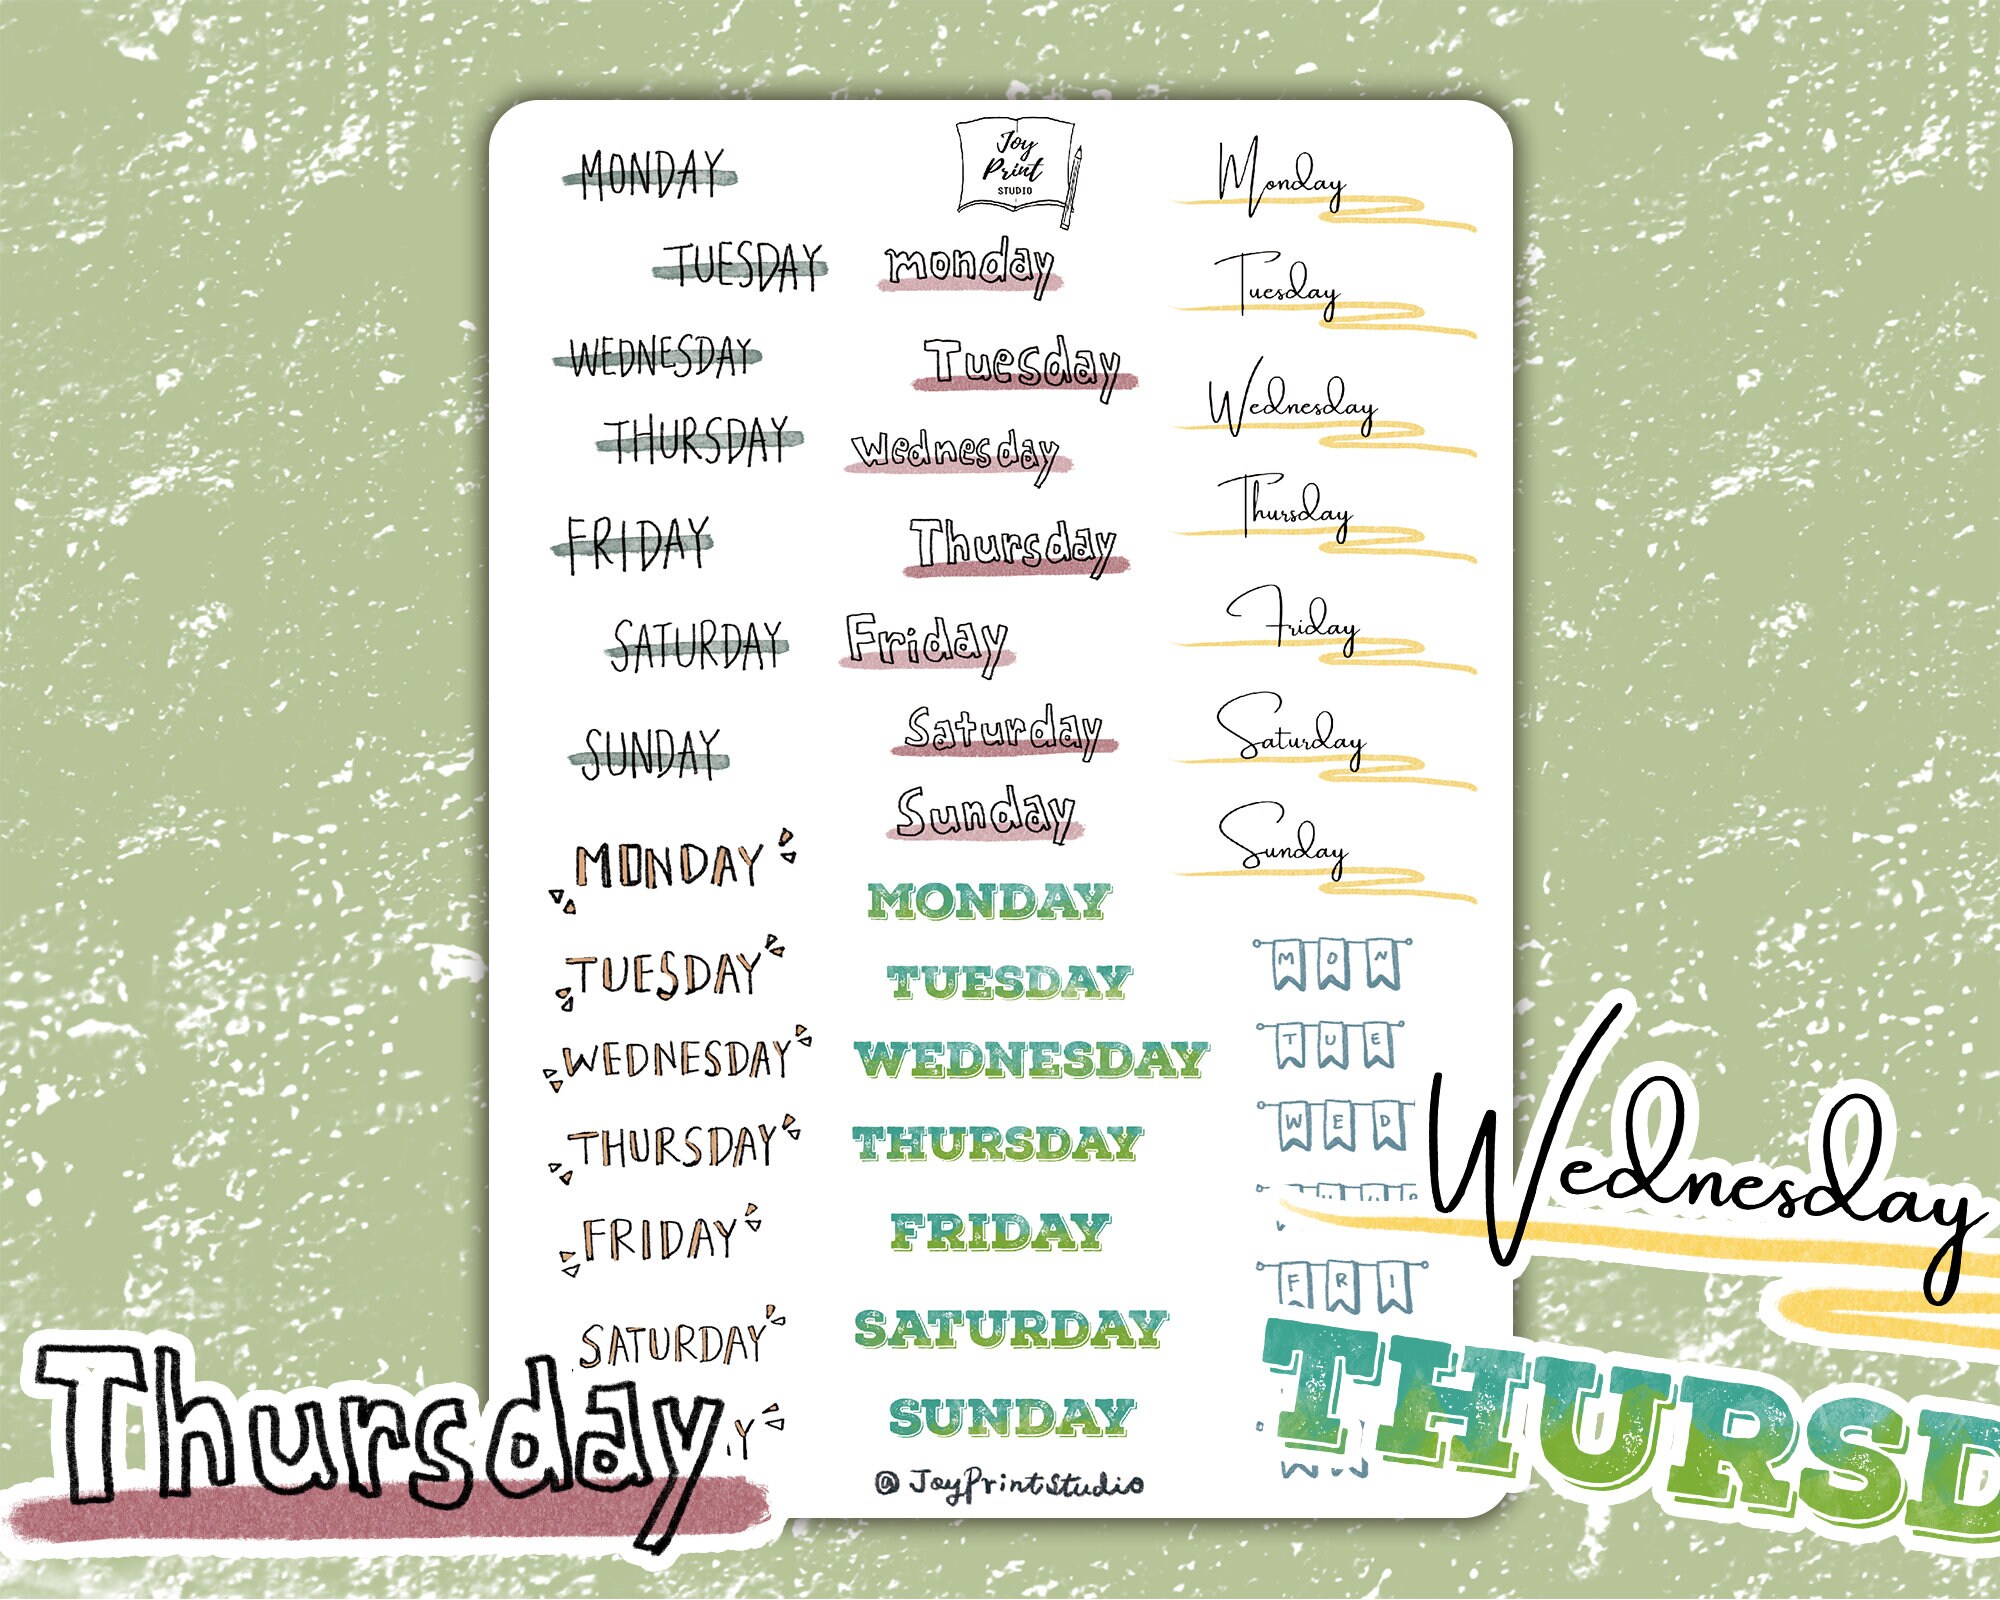 MONDAY
TUESDAY
WEDNESDAY
THURSDAY
FRIDAY
SATURDAY
SUNDAY
MONDAY
TUESDAY
WEDNESDAY
THURSDAY
FRIDAY
SATURDAY
Joy
Print
STUDIO
monday
Tuesday
Wednesday
Thursday
Friday
Saturday
Sunday
MONDAY
TUESDAY
WEDNESDAY
THURSDAY
FRIDAY
SATURDAY
SUNDAY
@JoyPrintStudio
Monday
Tuesday
Wednesday
Thursday
Friday
Saturday
Sunday
MON
TUE
WED
FRI
Thursday
Wednesday
THURSD